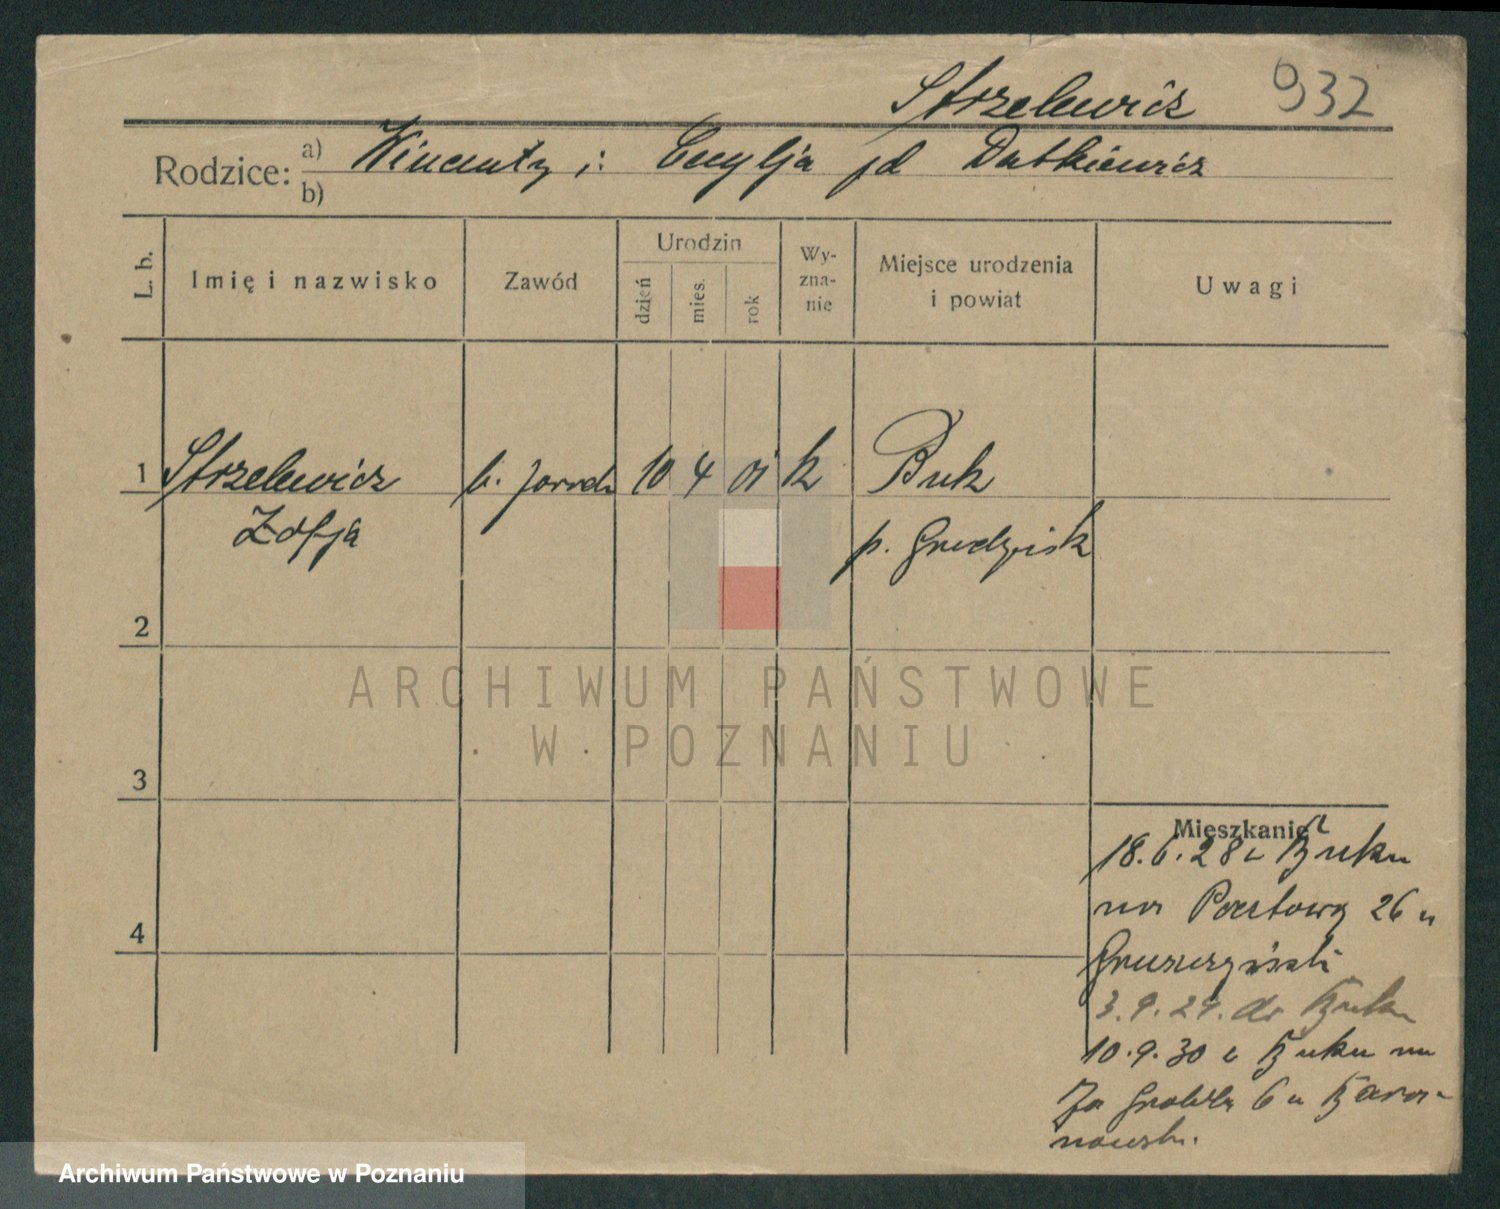 Strzelewicz 932
Rodzice: a) Wincenty i Cecylja zd Dutkiewicz
b)
L. b. Imię i nazwisko Zawód Urodzin dzień mies. rok Wy-zna-nie Miejsce urodzenia i powiat Uwagi
1 Strzelewicz b. zawodu 10 4 01 k Buk
Zofja p. Grodzisk
2
ARCHIWUM PAŃSTWOWE
W POZNANIU
3
Mieszkanie
18.6.28 z Buku
na Pocztową 26 u
4
3.9.29. do Buku
10.9.30 z Buku na
Za Groblą 6 u Bara-
nowsk.
Archiwum Państwowe w Poznaniu